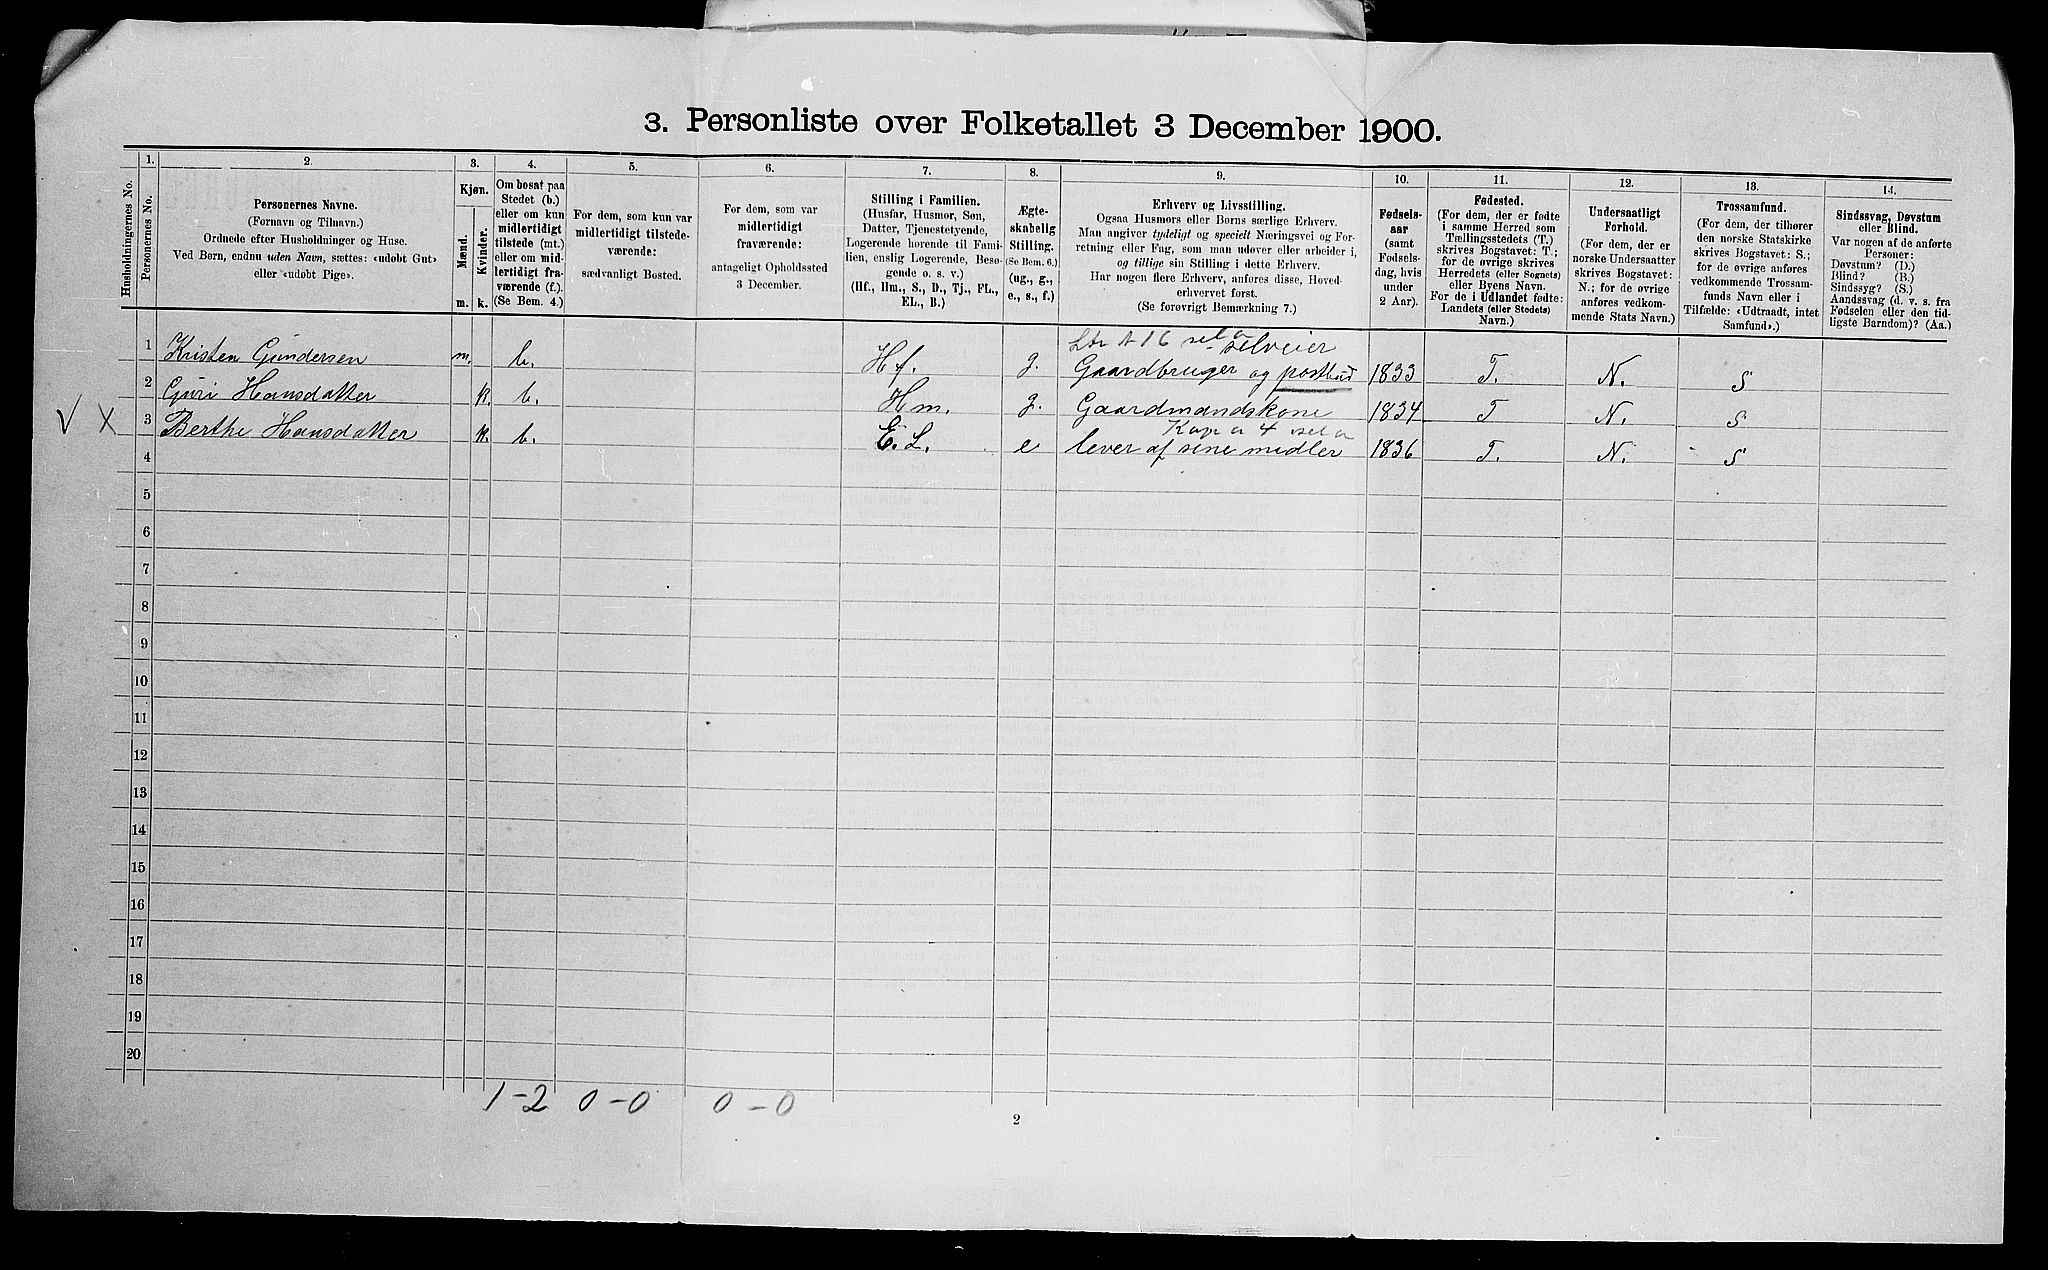 3. Personliste over Folketallet 3 December 1900.
Husholdningernes No.
1.
Personernes No.
2.
Personernes Navne.
(Fornavn og Tilnavn.)
Ordnede efter Husholdninger og Huse.
Ved Børn, endnu uden Navn, sættes: «udøbt Gut»
eller «udøbt Pige».
3.
Kjøn.
Mænd.
Kvinder.
m.
k.
4.
Om bosat paa
Stedet (b.)
eller om kun
midlertidigt
tilstede (mt.)
eller om mid-
lertidigt fra-
værende (f.).
(Se Bem. 4.)
5.
For dem, som kun var
midlertidigt tilstede-
værende:
sædvanligt Bosted.
6.
For dem, som var
midlertidigt
fraværende:
antageligt Opholdssted
3 December.
7.
Stilling i Familien.
(Husfar, Husmor, Søn,
Datter, Tjenestetyende,
Logerende hørende til Fami-
lien, enslig Logerende, Besø-
gende o. s. v.)
(Hf., Hm., S., D., Tj., FL.,
EL., B.)
8.
Ægte-
skabelig
Stilling.
(Se Bem. 6.)
(ug., g.,
e., s., f.)
9.
Erhverv og Livsstilling.
Ogsaa Husmors eller Børns særlige Erhverv.
Man angiver tydeligt og specielt Næringsvei og For-
retning eller Fag, som man udøver eller arbeider i,
og tillige sin Stilling i dette Erhverv.
Har nogen flere Erhverv, anføres disse, Hoved-
erhvervet først.
(Se forøvrigt Bemærkning 7.)
10.
Fødsels-
aar
(samt
Fødsels-
dag, hvis
under
2 Aar).
11.
Fødested.
(For dem, der er fødte
i samme Herred som
Tællingsstedets (T.)
skrives Bogstavet: T.;
for de øvrige skrives
Herredets (eller Sognets)
eller Byens Navn.
For de i Udlandet fødte:
Landets (eller Stedets)
Navn.)
12.
Undersaatligt
Forhold.
(For dem, der er
norske Undersaatter
skrives Bogstavet:
N.; for de øvrige
anføres vedkom-
mende Stats Navn.)
13.
Trossamfund.
(For dem, der tilhører
den norske Statskirke
skrives Bogstavet: S.;
for de øvrige anføres
vedkommende Trossam-
funds Navn eller i
Tilfælde: «Udtraadt, intet
Samfund».)
14.
Sindssvag, Døvstum
eller Blind.
Var nogen af de anførte
Personer:
Døvstum? (D.)
Blind? (B.)
Sindssyg? (S.)
Aandssvag (d. v. s. fra
Fødselen eller den tid-
ligste Barndom)? (Aa.)
selveier
1 Kristen Gundersen m. b. Hf. g. Gaardbruger og postbud 1833 T. N. S
2 Guri Hansdatter k. b. Hm. g. Gaardmandskone 1834 T N. S
V X 3 Berthe Hansdatter k. b. E.L. e lever af sine midler 1836 T. N. S
4
5
6
7
8
9
10
11
12
13
14
15
16
17
18
19
20
1-2 0-0 0-0
2